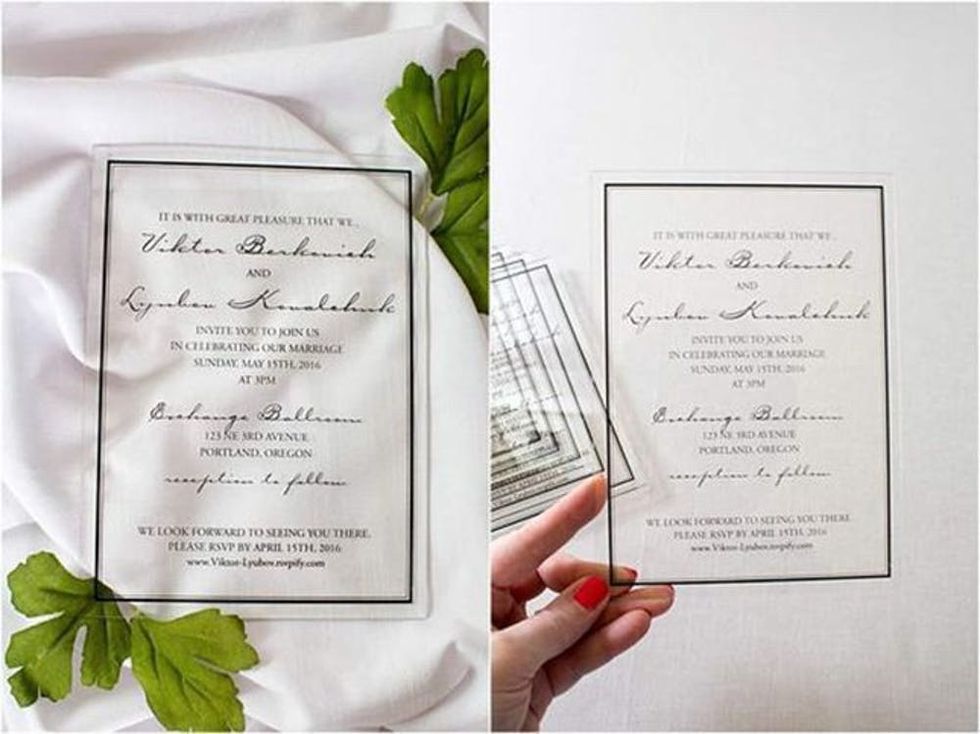 IT IS WITH GREAT PLEASURE THAT WE...
Viktor Berkovich
AND
Lyubov Kovalchuk
INVITE YOU TO JOIN US
IN CELEBRATING OUR MARRIAGE
SUNDAY, MAY 15TH, 2016
AT 3PM
Exchange Ballroom
123 NE 3RD AVENUE
PORTLAND, OREGON
reception to follow
WE LOOK FORWARD TO SEEING YOU THERE.
PLEASE RSVP BY APRIL 15TH, 2016
www.Viktor-Lyubov.rsvpify.com
IT IS WITH GREAT PLEASURE THAT WE...
Viktor Berkovich
AND
Lyubov Kovalchuk
INVITE YOU TO JOIN US
IN CELEBRATING OUR MARRIAGE
SUNDAY, MAY 15TH, 2016
AT 3PM
Exchange Ballroom
123 NE 3RD AVENUE
PORTLAND, OREGON
reception to follow
WE LOOK FORWARD TO SEEING YOU THERE.
PLEASE RSVP BY APRIL 15TH, 2016
www.Viktor-Lyubov.rsvpify.com